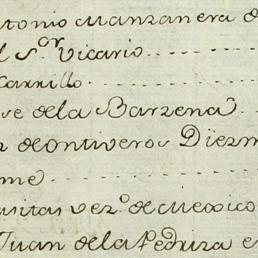 tonio Manzanera d
l S.or Vicario
Carrillo
se de la Barzena
z de Ontiveros Diezm
me
usitas vez.o de Mexico
Juan de la Pedriza e